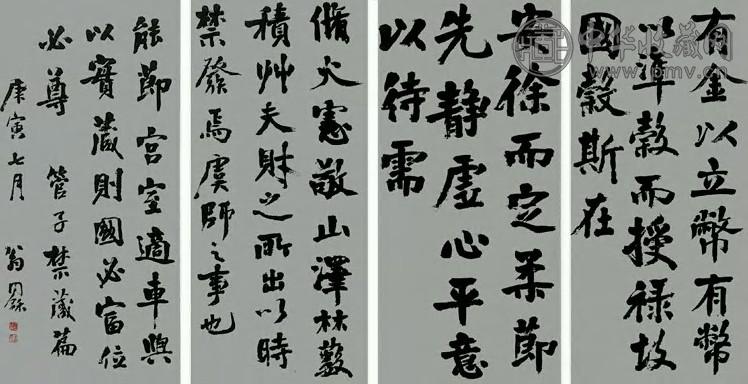 有金以立幣有幣
以準穀而授祿故
國穀斯在
安徐而定柔節
先靜虛心平意
以待需
脩火憲敬山澤林藪
積艸夫財之所出以時
禁發焉虞師之事也
能節宮室適車輿
以實藏則國必富位
必尊 管子禁藏篇
庚寅七月 翁同龢
中华收藏网
www.pmv.cn